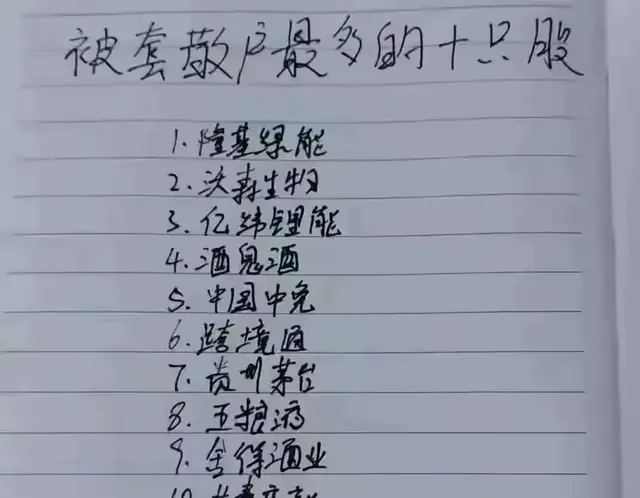 被套散户最多的十只股
1.隆基绿能
2.沃森生物
3.亿纬锂能
4.酒鬼酒
5.中国中免
6.跨境通
7.贵州茅台
8.五粮液
9.舍得酒业
10.